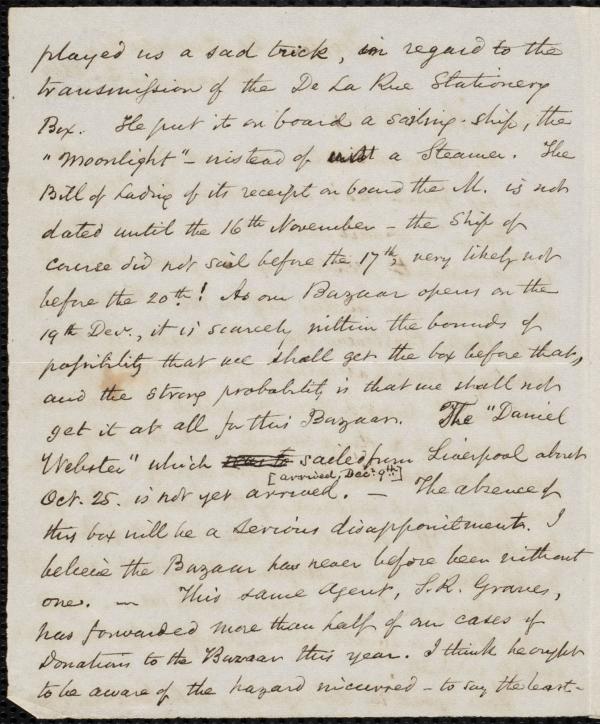 played us a sad trick, in regard to the
transmission of the De La Rue Stationery
Box. He put it on board a sailing-ship, the
"Moonlight" - instead of a Steamer. The
Bill of Lading of its receipt on board the M. is not
dated until the 16th November - the Ship of
course did not sail before the 17th, very likely not
before the 20th! As our Bazaar opens on the
19th Decr., it is scarcely within the bounds of
possibility that we shall get the box before that,
and the strong probability is that we shall not
get it at all for this Bazaar. The "Daniel
Webster" which sailed from Liverpool about
[arrived, Decr. 9th]
Oct. 25. is not yet arrived. - The absence of
this box will be a serious disappointment. I
believe the Bazaar has never before been without
one. — This same Agent, S. R. Graves,
has forwarded more than half of our cases of
Donations to the Bazaar this year. I think he ought
to be aware of the hazard incurred - to say the least -